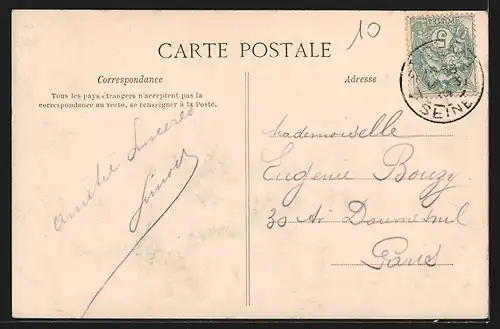 10
CARTE POSTALE
Correspondance
Tous les pays étrangers n'acceptent pas la
correspondance au recto, se renseigner à la Poste.
amitié sincères
Adresse
POSTES
5
SEINE
Mademoiselle
Eugénie Bouzy
30 Av Daumesnil
Paris